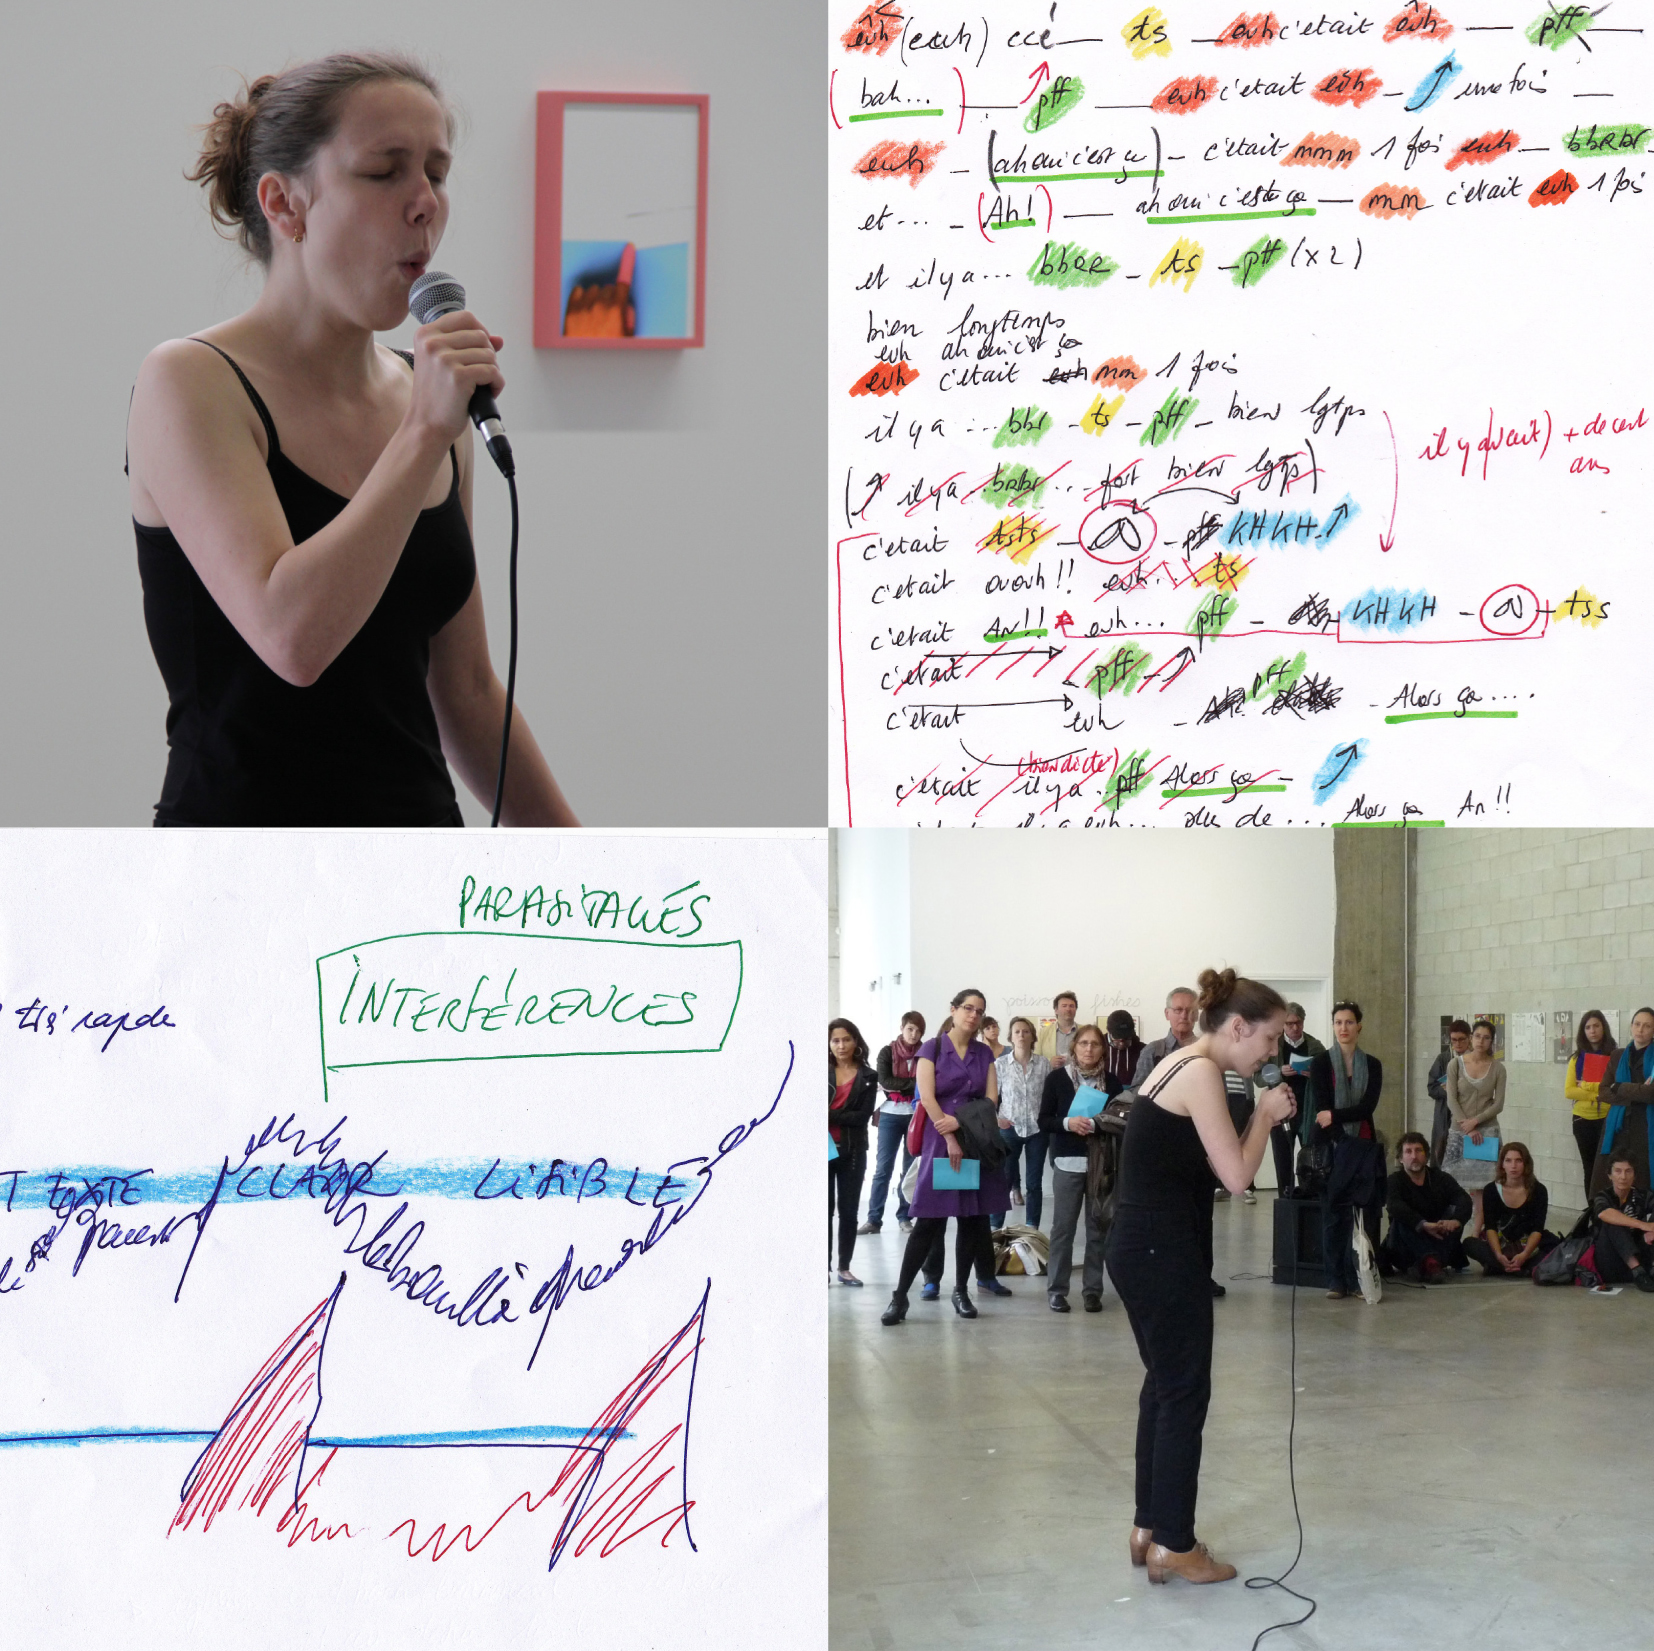 euh (euh) ccé — ts — euh c'etait euh — pff —
(bah...) — pff — euh c'etait euh — une fois —
euh — (ah oui c'est ça) — c'était mmm 1 fois euh — bbRbr
et ... — (Ah!) — ah oui c'est ça — mm c'était euh 1 fois
et il y a ... bbRR — ts — pff (x2)
bien longtemps
euh ah oui c'est ça
euh c'etait euh mm 1 fois
il y a ... bbr — ts — pff — bien lgtps
il y avait) + de cent
ans
(il y a .. brbr ... — fort bien lgtps)
c'etait tsts — — pff KHKH
c'etait oueuh!! euh... ts
c'etait AN!! euh... pff — KHKH — + tss
c'etait pff
c'était euh — pff — Alors ça ....
(bien dicté)
c'était il y a .. pff Alors ça —
plus de ... Alors ça An!!
PARASITAGES
INTERFÉRENCES
très rapide
TEXTE CLAIR LISIBLE